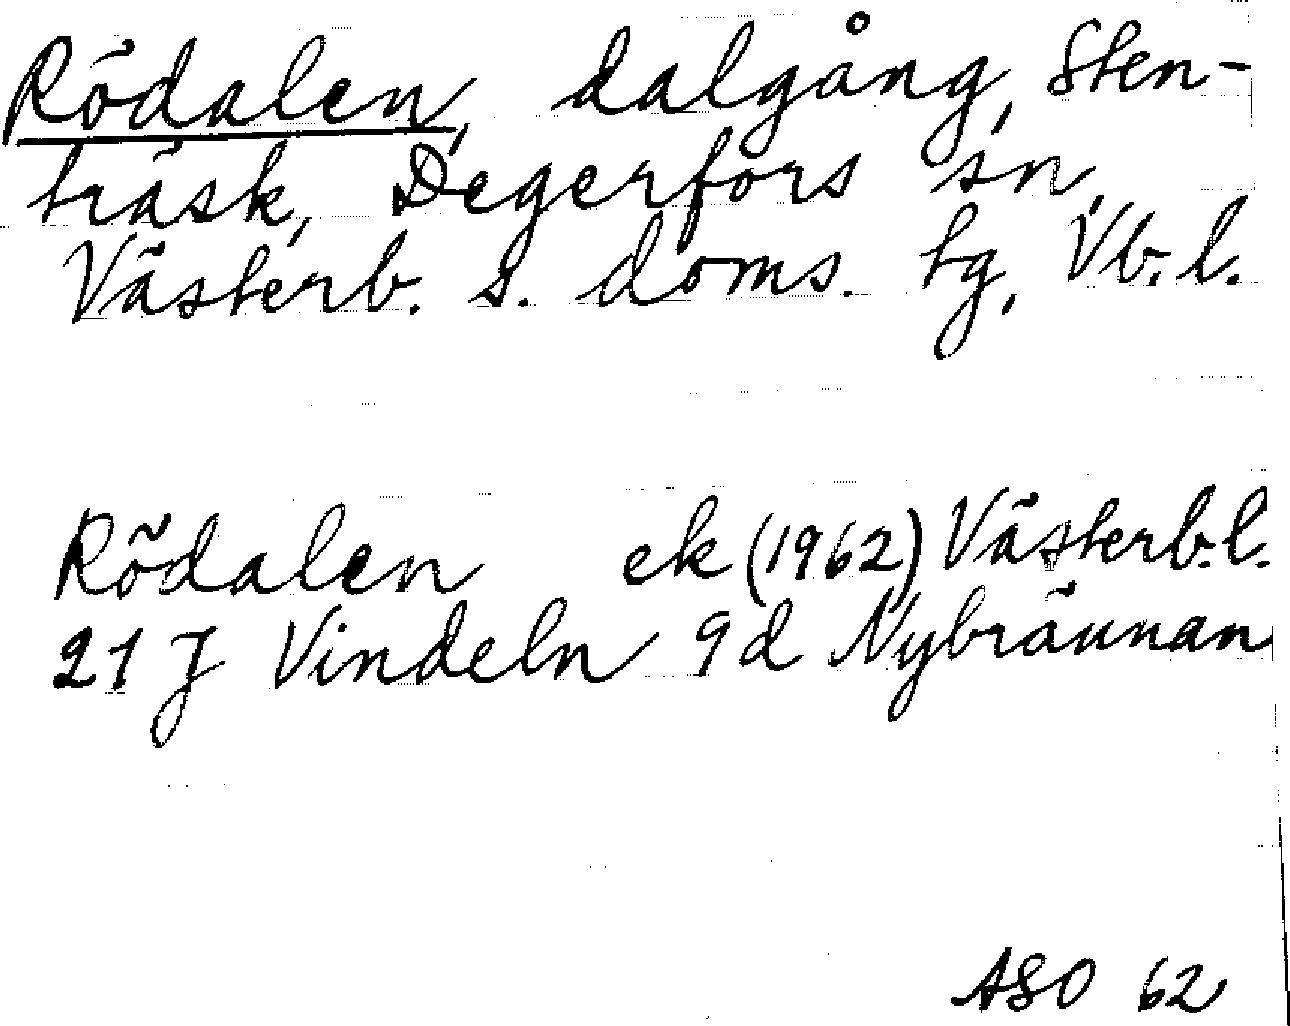 Rödalen, dalgång, Sten-
träsk, Degerfors sn,
Västerb. s. doms. tg, Vb. l.
Rödalen ek (1962) Västerb. l.
21 J Vindeln 9d Nybrännan
ASO 62